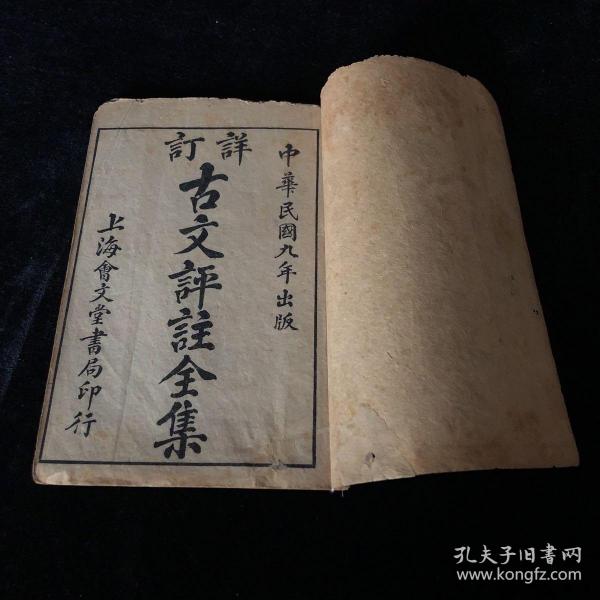 中華民國九年出版
詳訂
古文評註全集
上海會文堂書局印行
孔夫子旧书网
www.kongfz.com